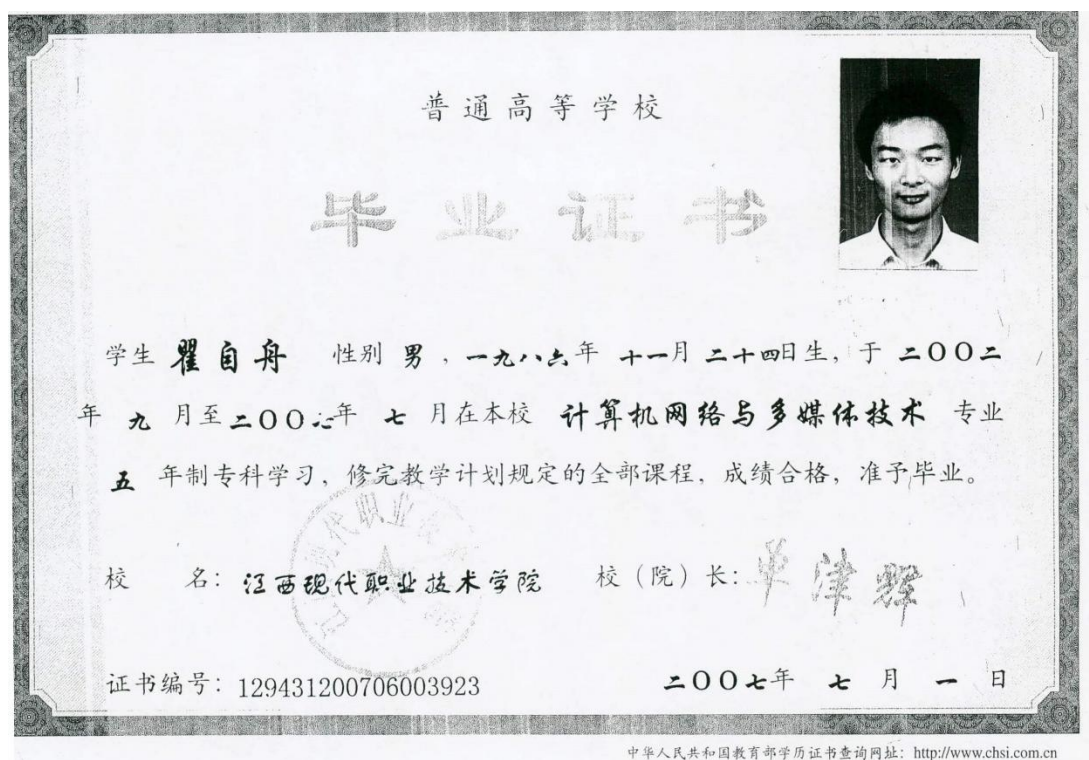 普通高等学校
毕业证书
学生 瞿自舟 性别 男，一九八六年 十一月 二十四日生，于 二〇〇二
年 九 月至 二〇〇七年 七 月在本校 计算机网络与多媒体技术 专业
五 年制专科学习，修完教学计划规定的全部课程，成绩合格，准予毕业。
校 名：江西现代职业技术学院 校（院）长：
证书编号：129431200706003923 二〇〇七年 七 月 一 日
中华人民共和国教育部学历证书查询网址：http://www.chsi.com.cn